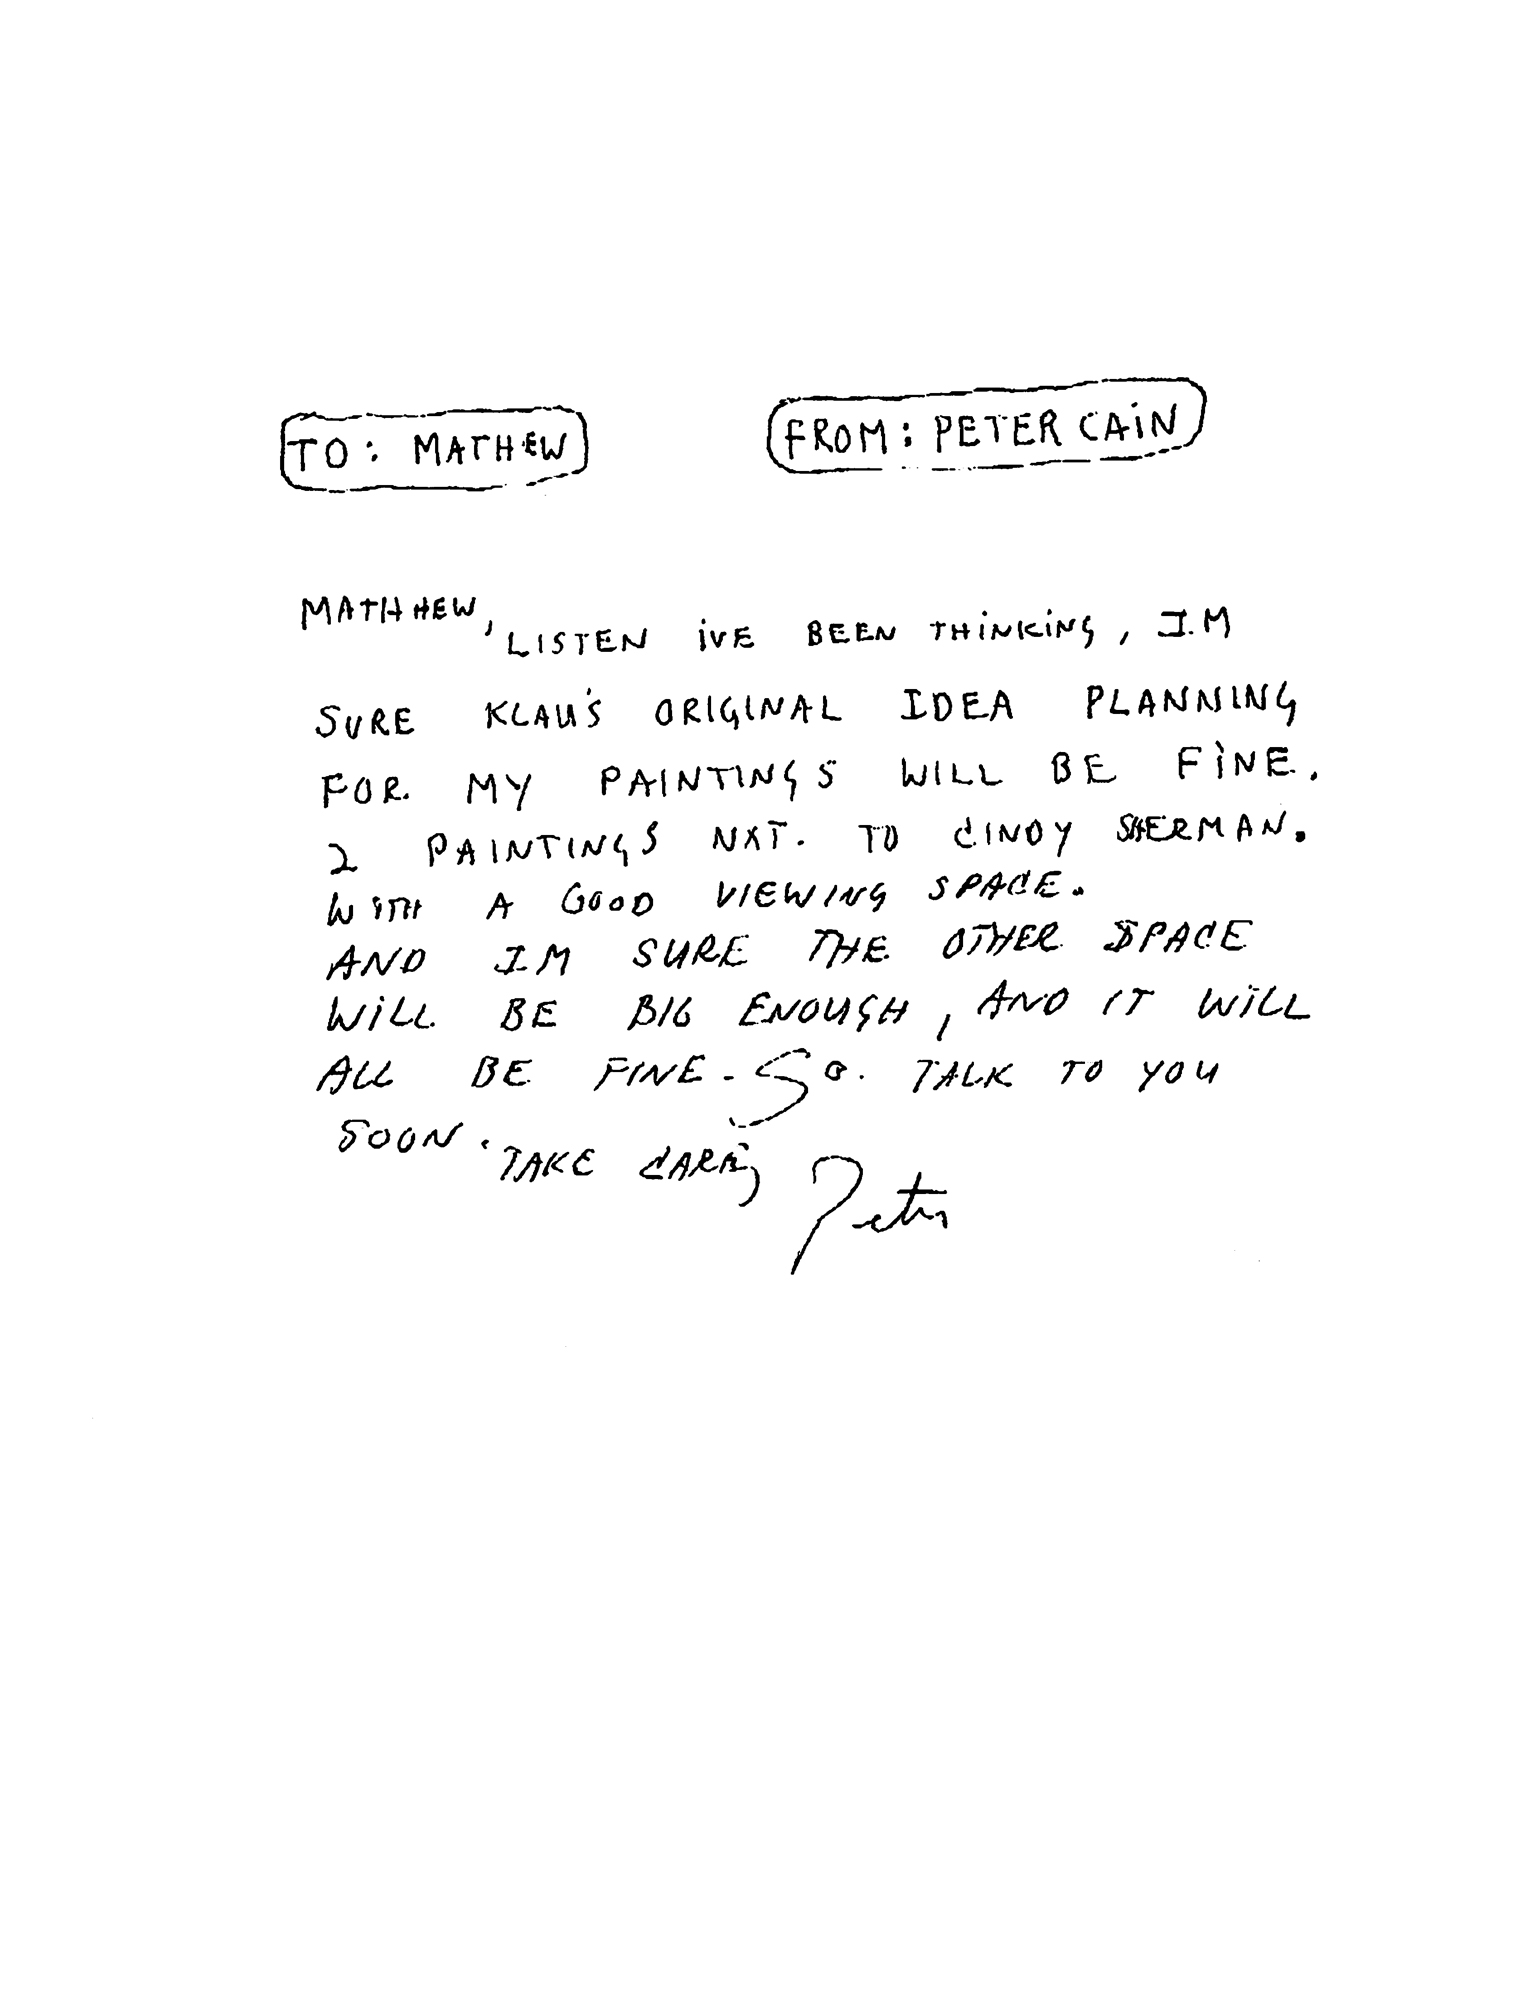 TO: MATHEW
FROM: PETER CAIN
MATHHEW,
LISTEN iVE BEEN THiNKiNG, I.M
SURE KLAU'S ORIGINAL IDEA PLANNING
FOR MY PAINTINGS WILL BE FINE.
2 PAINTINGS NXT. TO CINDY SHERMAN.
WITH A GOOD VIEWING SPACE.
AND I.M SURE THE OTHER SPACE
WiLL BE BIG ENOUGH, AND IT WiLL
ALL BE FINE - So. TALK TO YOU
SOON. TAKE CARE,
Peter